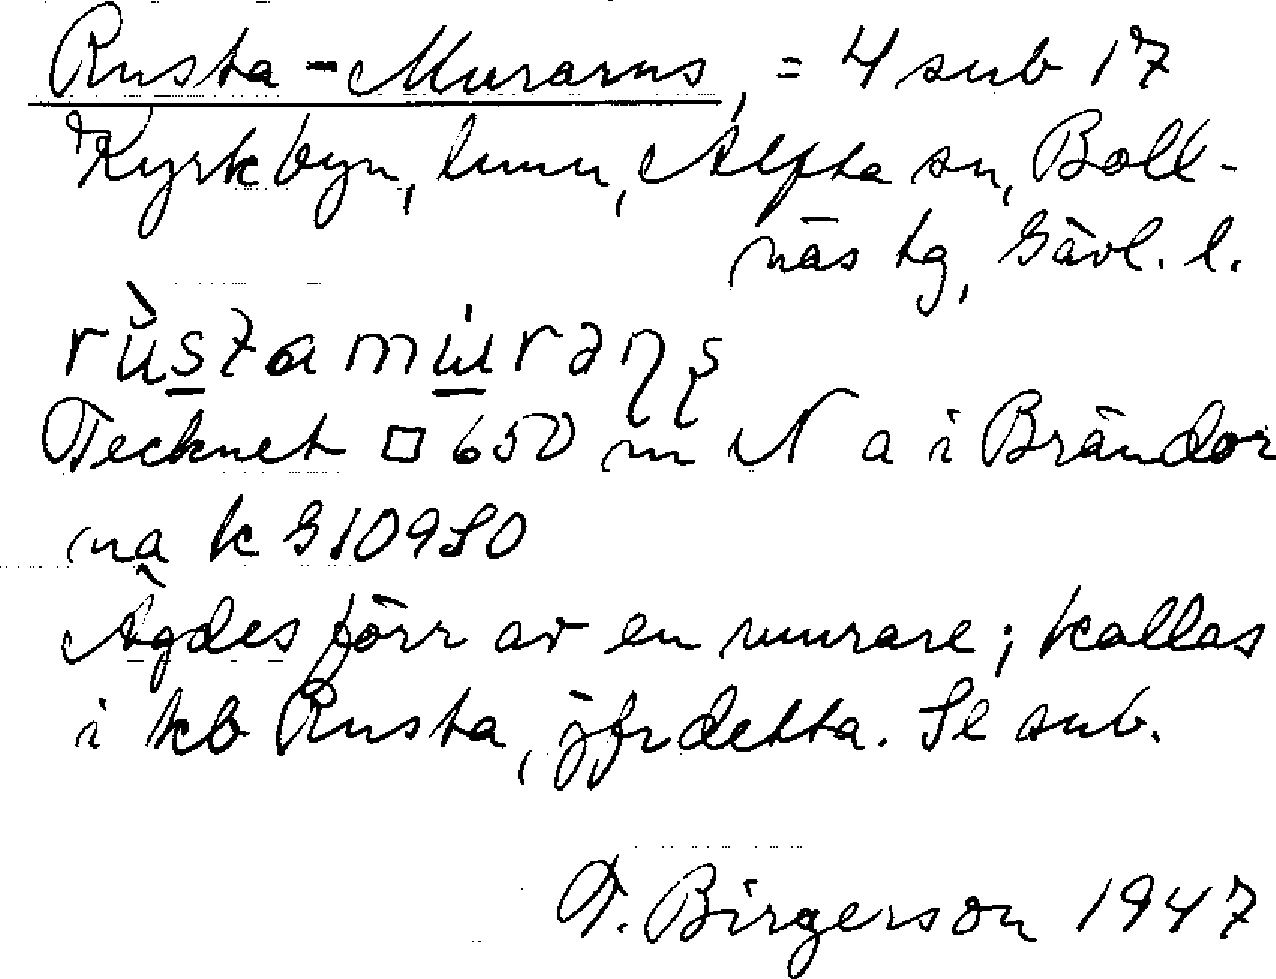 Rusta-Murarns, = 4 sub 17
Kyrkbyn, hmn, Alfta sn, Boll-
näs tg, Gävl. l.
Tecknet □ 650 m N a i Brändor
na k G10950
Ägdes förr av en murare; kallas
i kb Rusta, jfr detta. Se sub.
T. Birgerson 1947